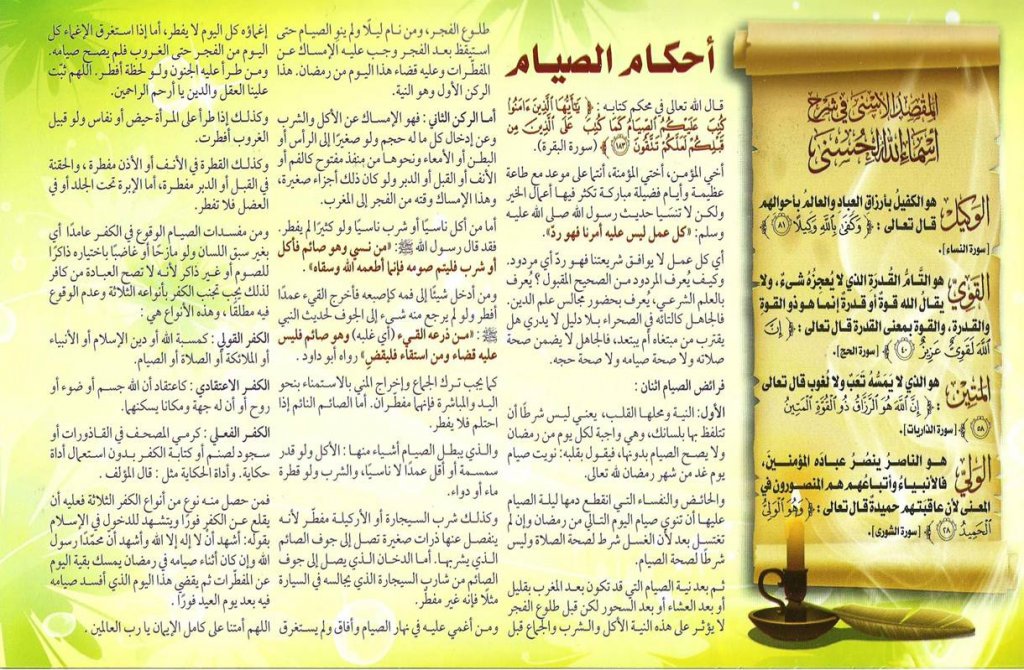 أحكام الصيام
قال الله تعالى في محكم كتابه : ﴿ يَٰٓأَيُّهَا ٱلَّذِينَ ءَامَنُوا۟
كُتِبَ عَلَيْكُمُ ٱلصِّيَامُ كَمَا كُتِبَ عَلَى ٱلَّذِينَ مِن
قَبْلِكُمْ لَعَلَّكُمْ تَتَّقُونَ ١٨٣ ﴾ (سورة البقرة).
أخي المؤمن، أختي المؤمنة، أنتما على موعد مع طاعة
عظيمة وأيام فضيلة مباركة تكثر فيها أعمال الخير
ولكن لا تنسَيا حديث رسول الله صلى الله عليه
وسلم: «كل عمل ليس عليه أمرنا فهو ردّ».
أي كل عمل لا يوافق شريعتنا فهو ردّ أي مردود.
وكيف يُعرف المردود من الصحيح المقبول ؟ يُعرف
بالعلم الشرعي، يُعرف بحضور مجالس علم الدين.
فالجاهل كالتائه في الصحراء بلا دليل لا يدري هل
يقترب من مبتغاه أم يبتعد، فالجاهل لا يضمن صحة
صلاته ولا صحة صيامه ولا صحة حجه.
فرائض الصيام اثنان :
الأول: النية ومحلها القلب، يعني ليس شرطًا أن
تتلفظ بها بلسانك، وهي واجبة لكل يوم من رمضان
ولا يصح الصيام بدونها، فيقول بقلبه: نويت صيام
يوم غد من شهر رمضان لله تعالى.
والحائض والنفساء التي انقطع دمها ليلة الصيام
عليها أن تنوي صيام اليوم التالي من رمضان وإن لم
تغتسل بعد لأن الغسل شرط لصحة الصلاة وليس
شرطًا لصحة الصيام.
ثم بعد نية الصيام التي قد تكون بعد المغرب بقليل
أو بعد العشاء أو بعد السحور لكن قبل طلوع الفجر
لا يؤثر على هذه النية الأكل والشرب والجماع قبل
طلوع الفجر، ومن نام ليلًا ولم ينو الصيام حتى
استيقظ بعد الفجر وجب عليه الإمساك عن
المفطّرات وعليه قضاء هذا اليوم من رمضان. هذا
الركن الأول وهو النية.
أما الركن الثاني : فهو الإمساك عن الأكل والشرب
وعن إدخال كل ما له حجم ولو صغيرًا إلى الرأس أو
البطن أو الأمعاء ونحوها من منفذ مفتوح كالفم أو
الأنف أو القبل أو الدبر ولو كان ذلك أجزاء صغيرة،
وهذا الإمساك وقته من الفجر إلى المغرب.
أما من أكل ناسيًا أو شرب ناسيًا ولو كثيرًا لم يفطر،
فقد قال رسول الله ﷺ : «من نسي وهو صائم فأكل
أو شرب فليتم صومه فإنما أطعمه الله وسقاه» .
ومن أدخل شيئًا إلى فمه كإصبعه فأخرج القيء عمدًا
أفطر ولو لم يرجع منه شيء إلى الجوف لحديث النبي
ﷺ : «من ذرعه القيء (أي غلبه) وهو صائم فليس
عليه قضاء ومن استقاء فليقضِ» رواه أبو داود .
كما يجب ترك الجماع وإخراج المني بالاستمناء بنحو
اليد والمباشرة فإنهما مفطّران. أما الصائم النائم إذا
احتلم فلا يفطر.
والذي يبطل الصيام أشياء منها : الأكل ولو قدر
سمسمة أو أقل عمدًا لا ناسيًا، والشرب ولو قطرة
ماء أو دواء.
وكذلك شرب السيجارة أو الأركيلة مفطّر لأنه
ينفصل عنها ذرات صغيرة تصل إلى جوف الصائم
الذي يشربها. أما الدخان الذي يصل إلى جوف
الصائم من شارب السيجارة الذي يجالسه في السيارة
مثلًا فإنه غير مفطّر.
ومن أغمي عليه في نهار الصيام وأفاق ولم يستغرق
إغماؤه كل اليوم لا يفطر، أما إذا استغرق الإغماء كل
اليوم من الفجر حتى الغروب فلم يصح صيامه.
ومن طرأ عليه الجنون ولو لحظة أفطر. اللهم ثبّت
علينا العقل والدين يا أرحم الراحمين.
وكذلك إذا طرأ على المرأة حيض أو نفاس ولو قبيل
الغروب أفطرت.
وكذلك القطرة في الأنف أو الأذن مفطرة ، والحقنة
في القبل أو الدبر مفطرة، أما الإبرة تحت الجلد أو في
العضل فلا تفطر.
ومن مفسدات الصيام الوقوع في الكفر عامدًا أي
بغير سبق اللسان ولو مازحًا أو غاضبًا باختياره ذاكرًا
للصوم أو غير ذاكر لأنه لا تصح العبادة من كافر
لذلك يجب تجنب الكفر بأنواعه الثلاثة وعدم الوقوع
فيه مطلقًا ، وهذه الأنواع هي :
الكفر القولي : كمسبة الله أو دين الإسلام أو الأنبياء
أو الملائكة أو الصلاة أو الصيام.
الكفر الاعتقادي : كاعتقاد أن الله جسم أو ضوء أو
روح أو أن له جهة ومكانا يسكنهما.
الكفر الفعلي : كرمي المصحف في القاذورات أو
سجود لصنم أو كتابة الكفر بدون استعمال أداة
حكاية. وأداة الحكاية مثل : قال المؤلف .
فمن حصل منه نوع من أنواع الكفر الثلاثة فعليه أن
يقلع عن الكفر فورًا ويتشهد للدخول في الإسلام
بقوله: أشهد أن لا إله إلا الله وأشهد أن محمّدًا رسول
الله وإن كان أثناء صيامه في رمضان يمسك بقية اليوم
عن المفطّرات ثم يقضي هذا اليوم الذي أفسد صيامه
فيه بعد يوم العيد فورًا .
اللهم أمتنا على كامل الإيمان يا رب العالمين .
المقصد الأسنى في شرح
أسماء الله الحسنى
الوكيل هو الكفيلُ بأرزاق العباد والعالمُ بأحوالهم
قال تعالى : ﴿ وَكَفَىٰ بِٱللَّهِ وَكِيلًا ٨١ ﴾
[سورة النساء].
القوي هو التامُّ القُدرة الذي لا يُعجزُهُ شيءٌ، ولا
يقال الله قوةٌ أو قدرة إنما هو ذو القوة
والقدرة، والقوة بمعنى القدرة قال تعالى : ﴿ إِنَّ
ٱللَّهَ لَقَوِىٌّ عَزِيزٌ ٤٠ ﴾ [سورة الحج].
المتين هو الذي لا يَمَسُّهُ تَعَبٌ ولا لُغوب قال تعالى
: ﴿ إِنَّ ٱللَّهَ هُوَ ٱلرَّزَّاقُ ذُو ٱلْقُوَّةِ ٱلْمَتِينُ
٥٨ ﴾ [سورة الذاريات].
الولي هو الناصرُ ينصُرُ عبادَه المؤمنين،
فالأنبياءُ وأتباعُهم هم المنصورون في
المعنى لأن عاقبتهم حميدةٌ قال تعالى : ﴿ وَهُوَ ٱلْوَلِىُّ
ٱلْحَمِيدُ ٢٨ ﴾ [سورة الشورى].